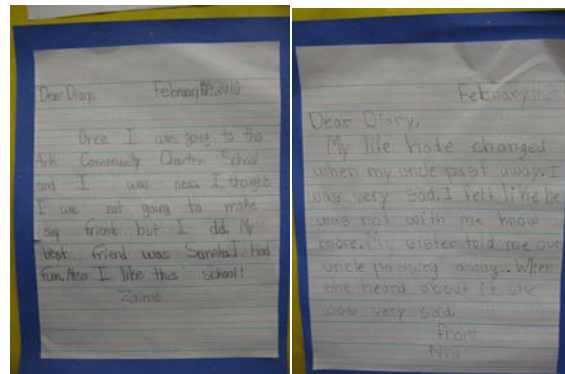 Dear Diary,
Once I was going to the
Ark Community Charter School
and I was new. I thought
I was not going to make
any friends but I did. My
best friend was I had
fun. Also I like this school!
Zainab
February
Dear Diary,
My life hade changed
when my uncle past away. I
was very sad. I felt like he
was not with me know
more. My sister told me our
uncle passing away. When
she heard about it she
was very sad.
from